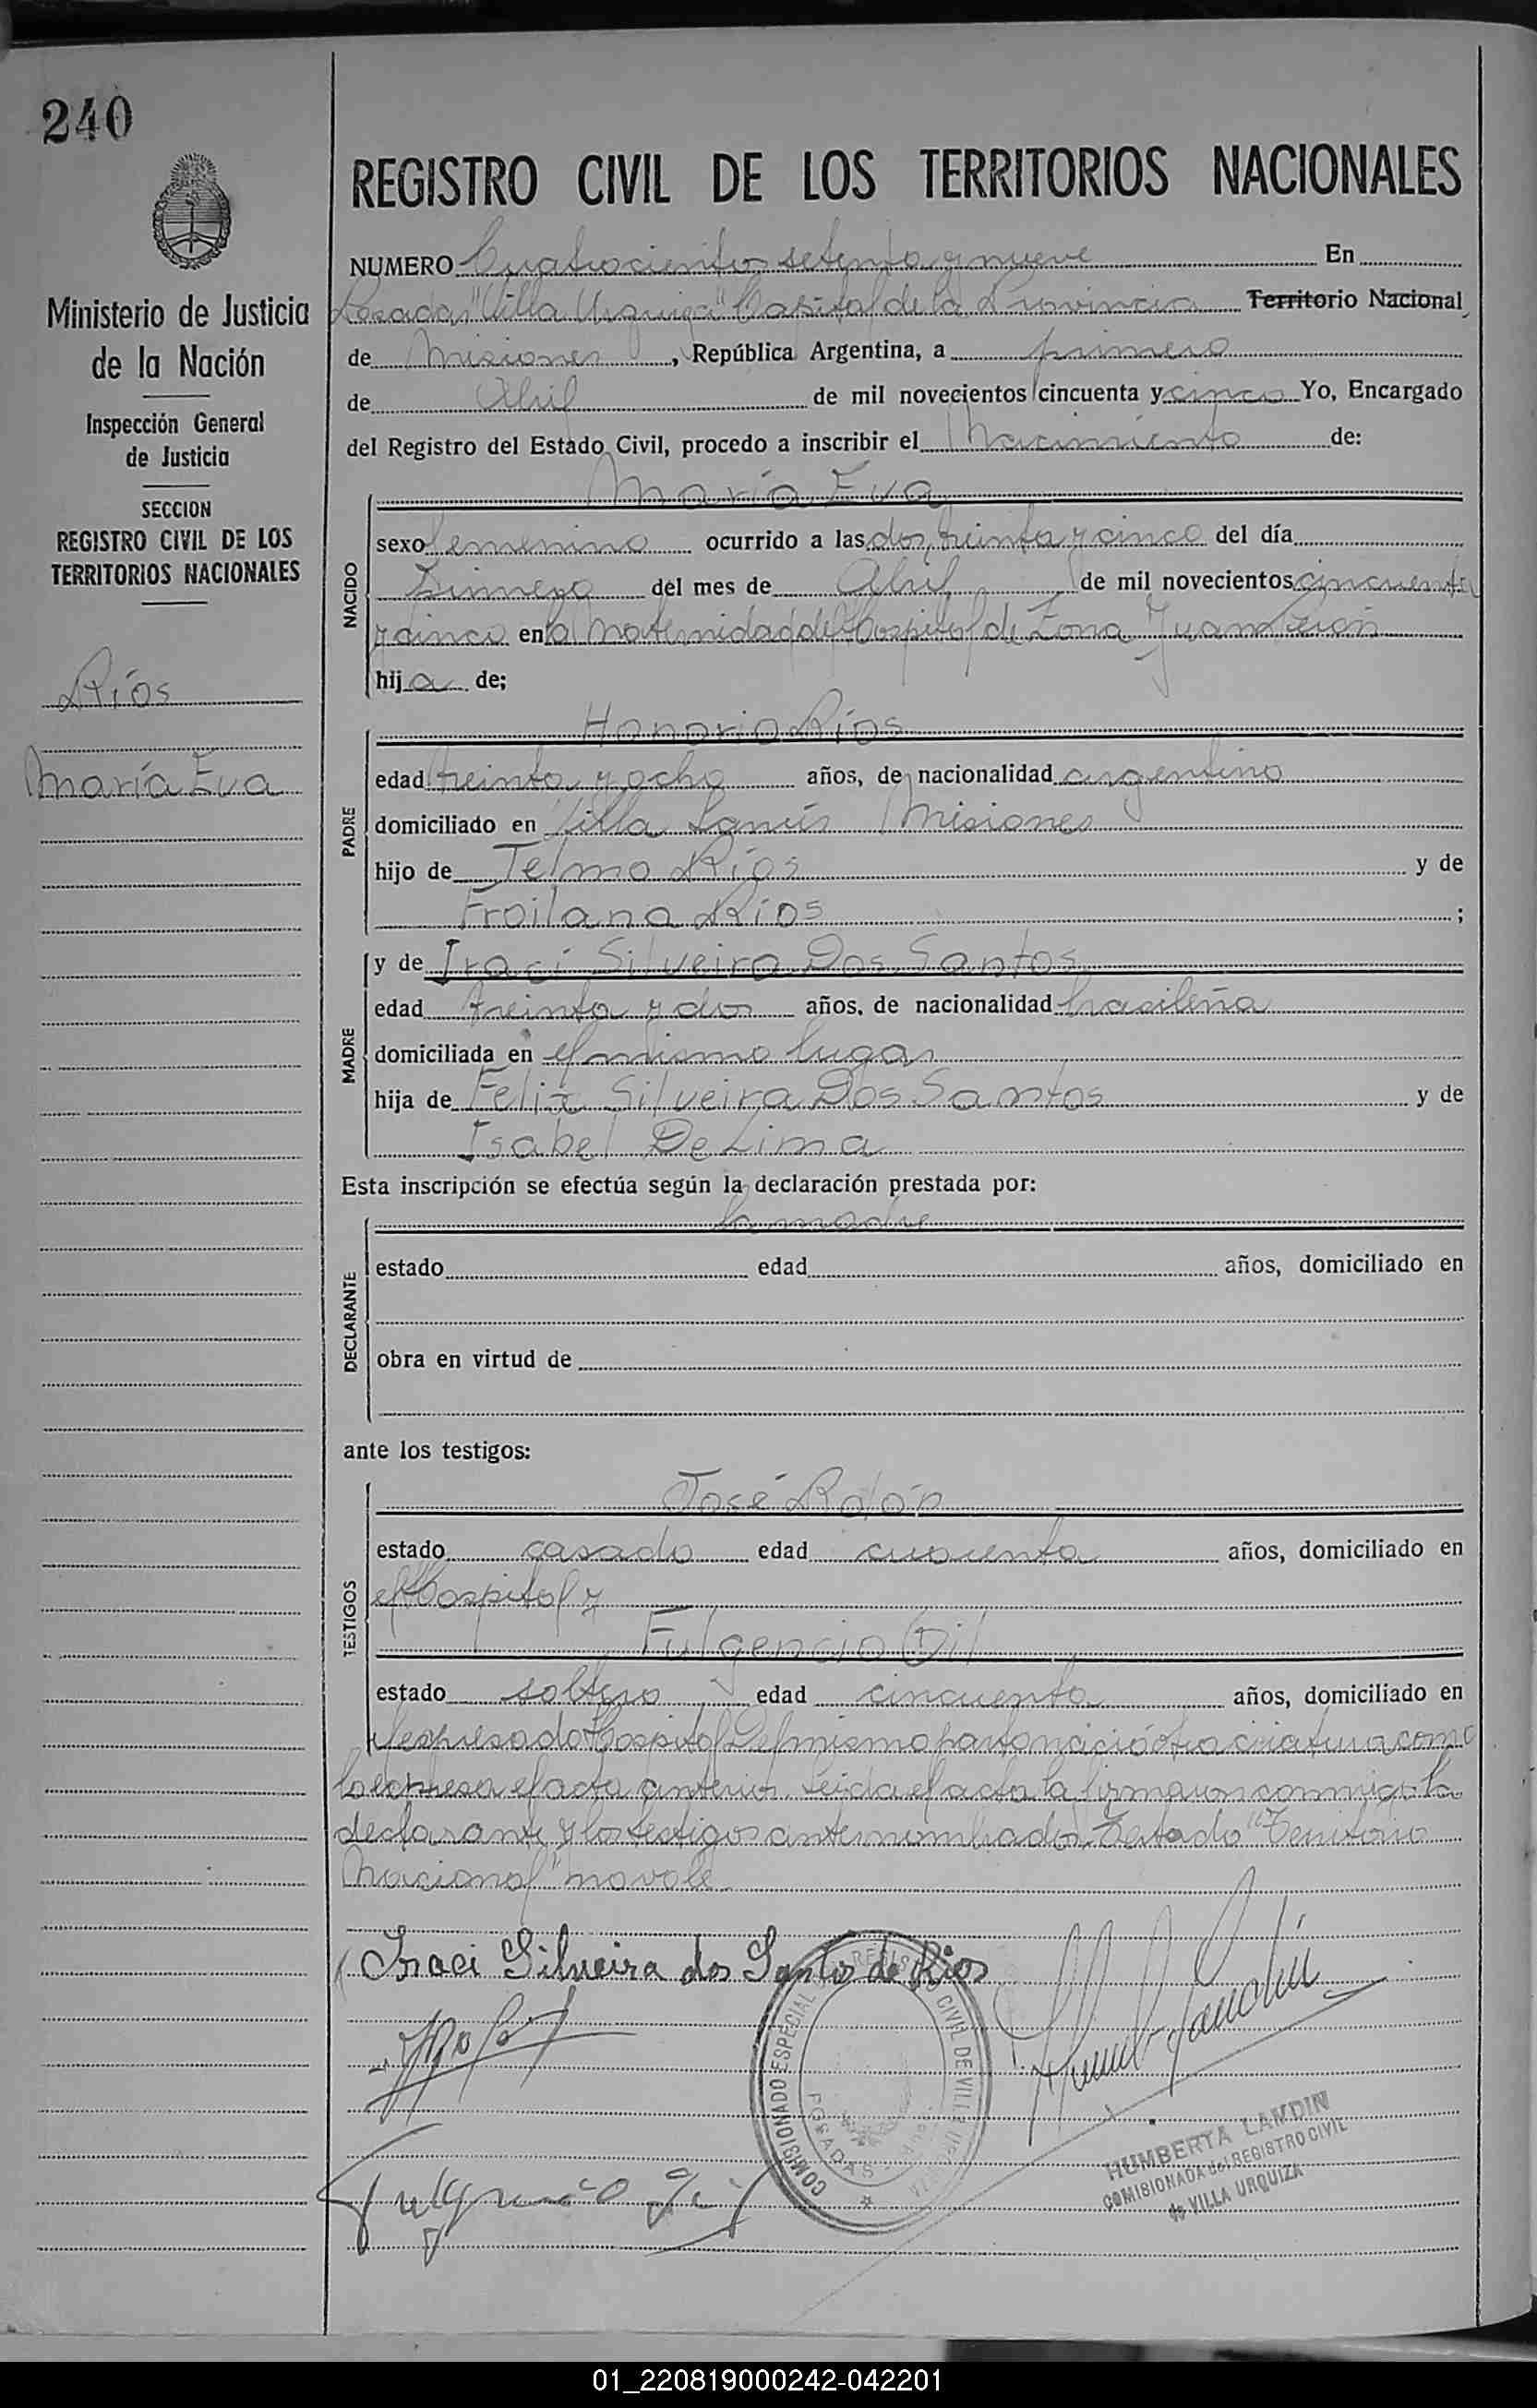 240
Ministerio de Justicia
de la Nación
Inspección General
de Justicia
SECCION
REGISTRO CIVIL DE LOS
TERRITORIOS NACIONALES
Ríos
María Eva
REGISTRO CIVIL DE LOS TERRITORIOS NACIONALES
NUMERO Cuatrocientos setenta y nueve En
Posadas "Villa Urquiza" Capital de la Provincia Territorio Nacional
de Misiones, República Argentina, a primero
de Abril de mil novecientos cincuenta y cinco Yo, Encargado
del Registro del Estado Civil, procedo a inscribir el Nacimiento de:
NACIDO
María Eva
sexo femenino ocurrido a las dos, treinta y cinco del día
primero del mes de Abril de mil novecientos cincuenta
y cinco en la Maternidad del Hospital de Zona "Juan Perón
hija de;
PADRE
Honorio Ríos
edad treinta y ocho años, de nacionalidad argentino
domiciliado en Villa Lanús Misiones
hijo de Telmo Ríos y de
Froilana Ríos ;
MADRE
y de Iraci Silveira Dos Santos
edad treinta y dos años, de nacionalidad brasileña
domiciliada en el mismo lugar
hija de Felix Silveira Dos Santos y de
Isabel De Lima
Esta inscripción se efectúa según la declaración prestada por:
DECLARANTE
la madre
estado edad años, domiciliado en
obra en virtud de
ante los testigos:
TESTIGOS
José Rolón
estado casado edad cuarenta años, domiciliado en
el Hospital y
Fulgencio Gil
estado soltero edad cincuenta años, domiciliado en
el expresado Hospital Del mismo parto nació otra criatura como
lo expresa el acta anterior. Leída el acta la firmaron conmigo la
declarante y los testigos antenombrados. Testado "Territorio
Nacional" no vale
Iraci Silveira dos Santos de Rios
Fulgencio Gil
COMISIONADO ESPECIAL REGISTRO CIVIL DE VILLA URQUIZA
POSADAS
HUMBERTA LANDIN
COMISIONADA del REGISTRO CIVIL
de VILLA URQUIZA
01_220819000242-042201